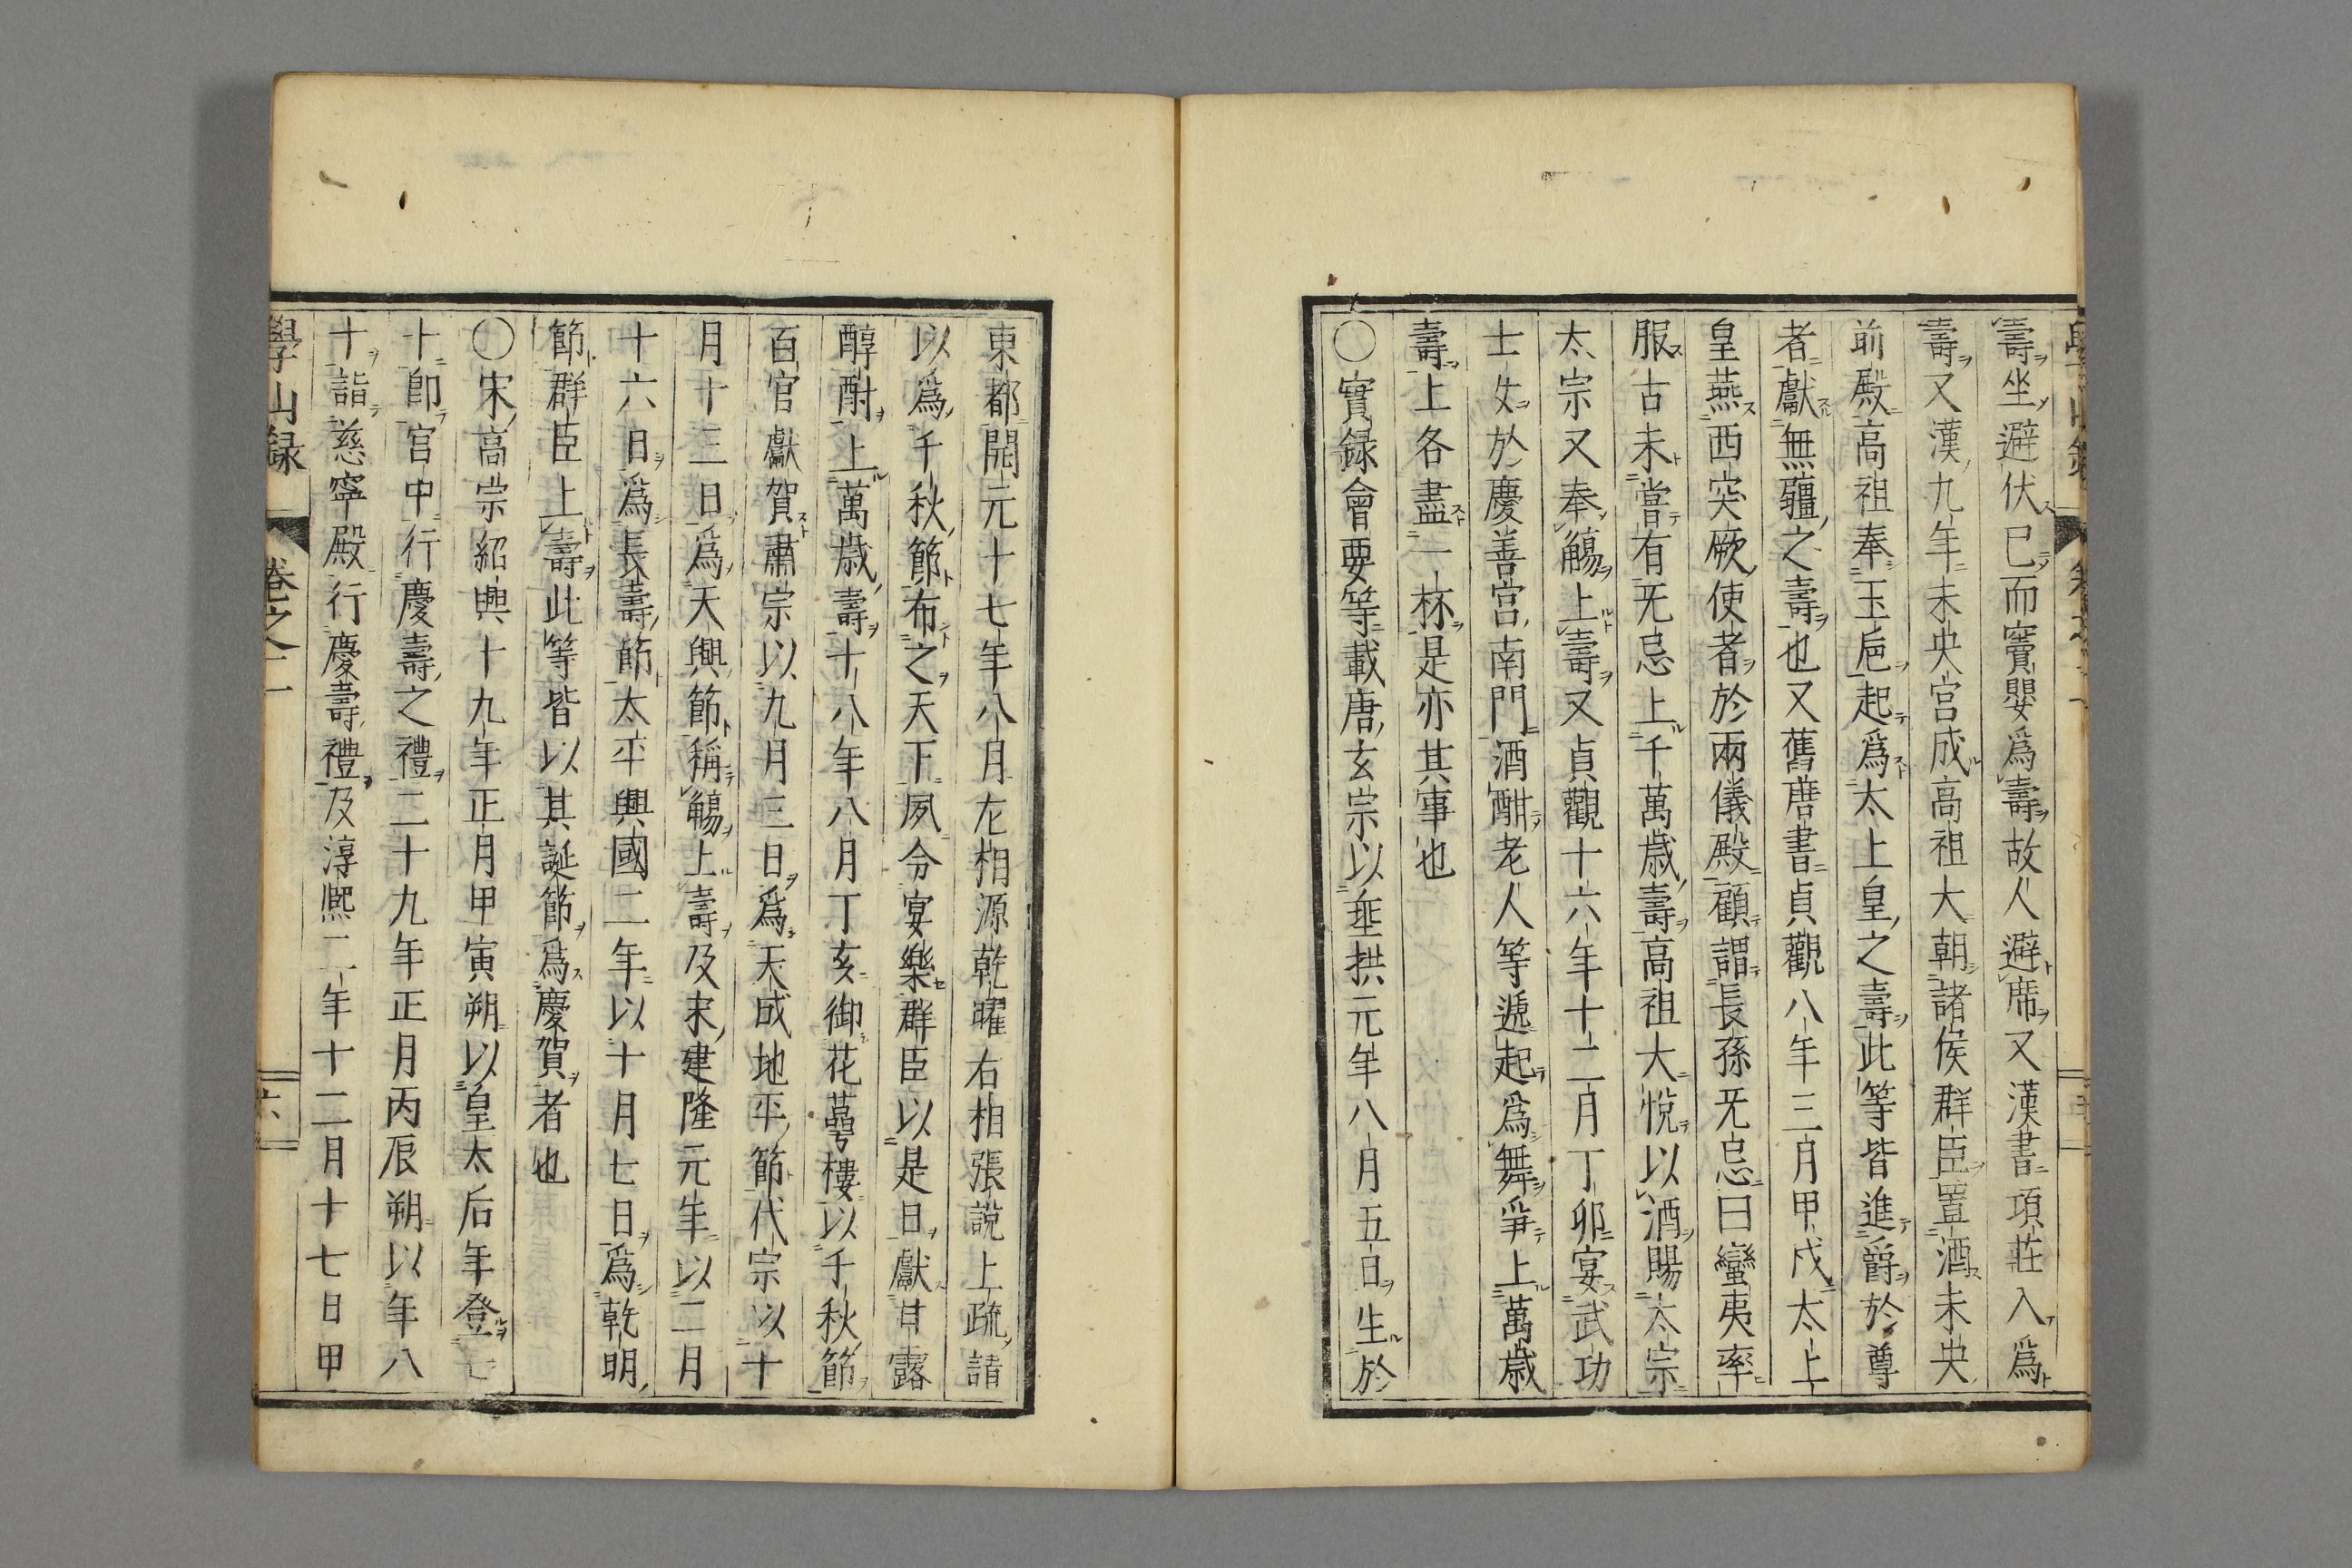 壽坐避伏已而竇嬰爲壽故人避席又漢書項莊入爲
壽又漢九年未央宮成高祖大朝諸侯群臣置酒未央
前殿高祖奉玉巵起爲太上皇之壽此等皆進爵於尊
者獻無疆之壽也又舊唐書貞觀八年三月甲戌太上
皇燕西突厥使者於兩儀殿顧謂長孫无忌曰蠻夷率
服古未嘗有无忌上千萬歲壽高祖大悅以酒賜太宗
太宗又奉觴上壽又貞觀十六年十二月丁卯宴武功
士女於慶善宮南門酒酣老人等遞起爲舞爭上萬歲
壽上各盡一杯是亦其事也
○實録會要等載唐玄宗以垂拱元年八月五日生於
東都開元十七年八月左相源乾曜右相張說上疏請
以爲千秋節布之天下夙令宴樂群臣以是日獻甘露
醇酎上萬歲壽十八年八月丁亥御花萼樓以千秋節
百官獻賀肅宗以九月三日爲天成地平節代宗以十
月十三日爲天興節稱觴上壽及宋建隆元年以二月
十六日爲長壽節太平興國二年以十月七日爲乾明
節群臣上壽此等皆以其誕節爲慶賀者也
○宋高宗紹興十九年正月甲寅朔以皇太后年登七
十即宮中行慶壽之禮二十九年正月丙辰朔以年八
十詣慈寧殿行慶壽禮及淳熈二年十二月十七日甲
學山録　卷之二　六